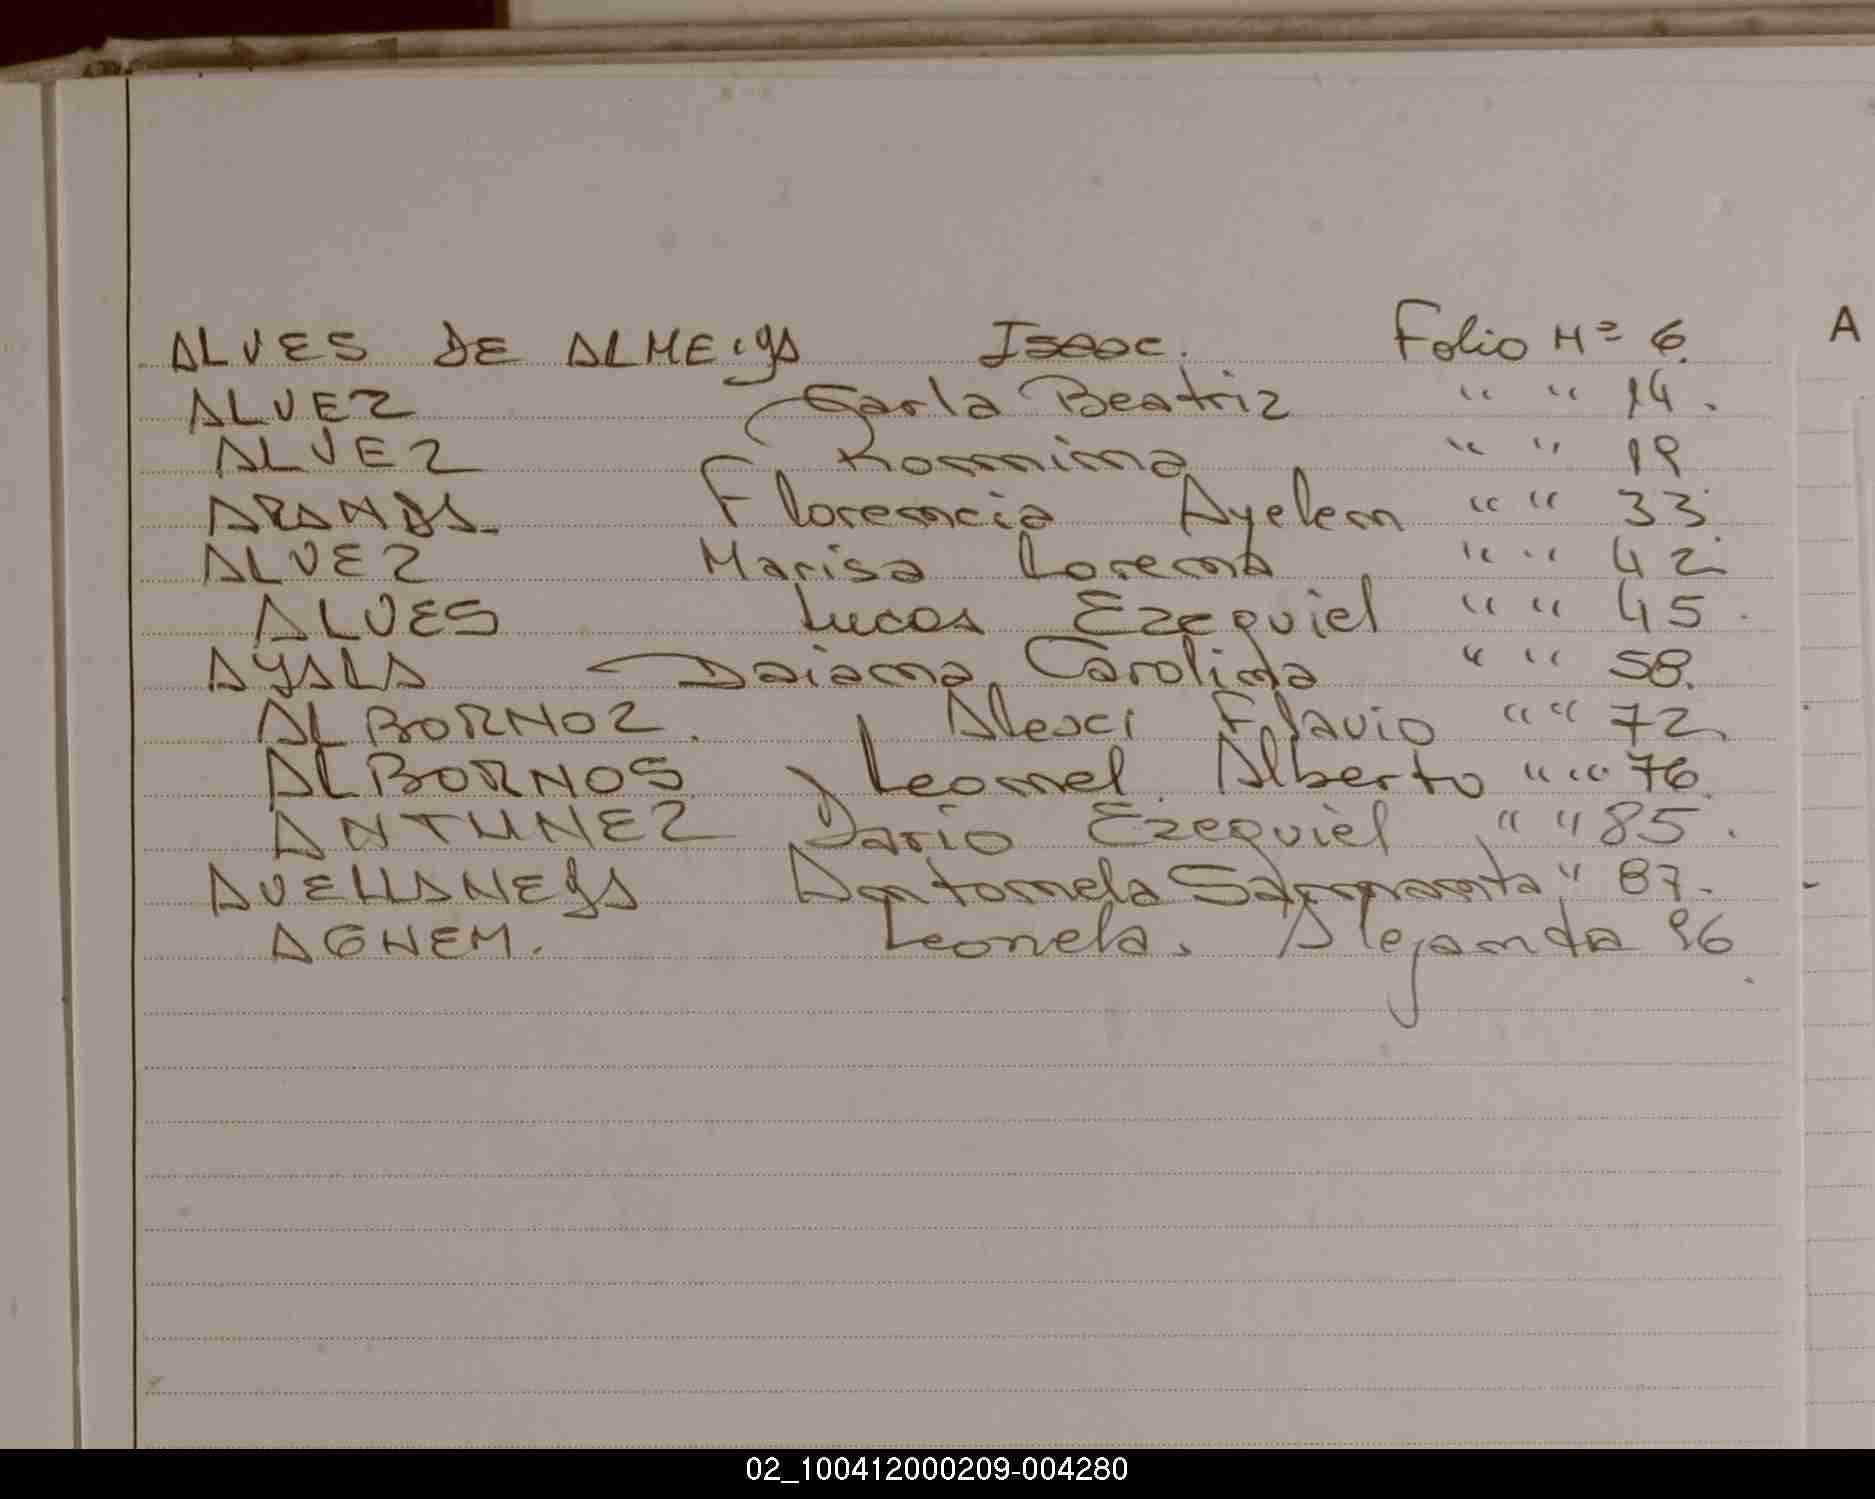 ALVES DE ALMEIDA Isaac. Folio Nº 6.
A
ALVEZ Carla Beatriz " " 14.
ALVEZ Rommina " " 19
ARANDA Florencia Ayelen " " 33
ALVEZ Marisa Lorena " " 42
ALVES Lucas Ezequiel " " 45.
AYALA Daiana Carolina " " 58.
ALBORNOZ. Alexci Flavio " " 72
ALBORNOS Leonel Alberto " " 76.
ANTUNEZ Dario Ezequiel " " 85.
AVELLANEDA Antonela Sammanta " 87.
AGNEM. Leonela. Alejanda 96
02_100412000209-004280